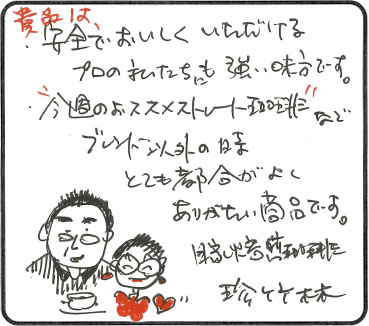 貴品は、
・安全でおいしくいただける
プロの私たちにも強い味方です。
・"今週のおススメストレート珈琲"など
ブレンド以外の日も
とても都合がよく
ありがたい商品です。
自家焙煎珈琲